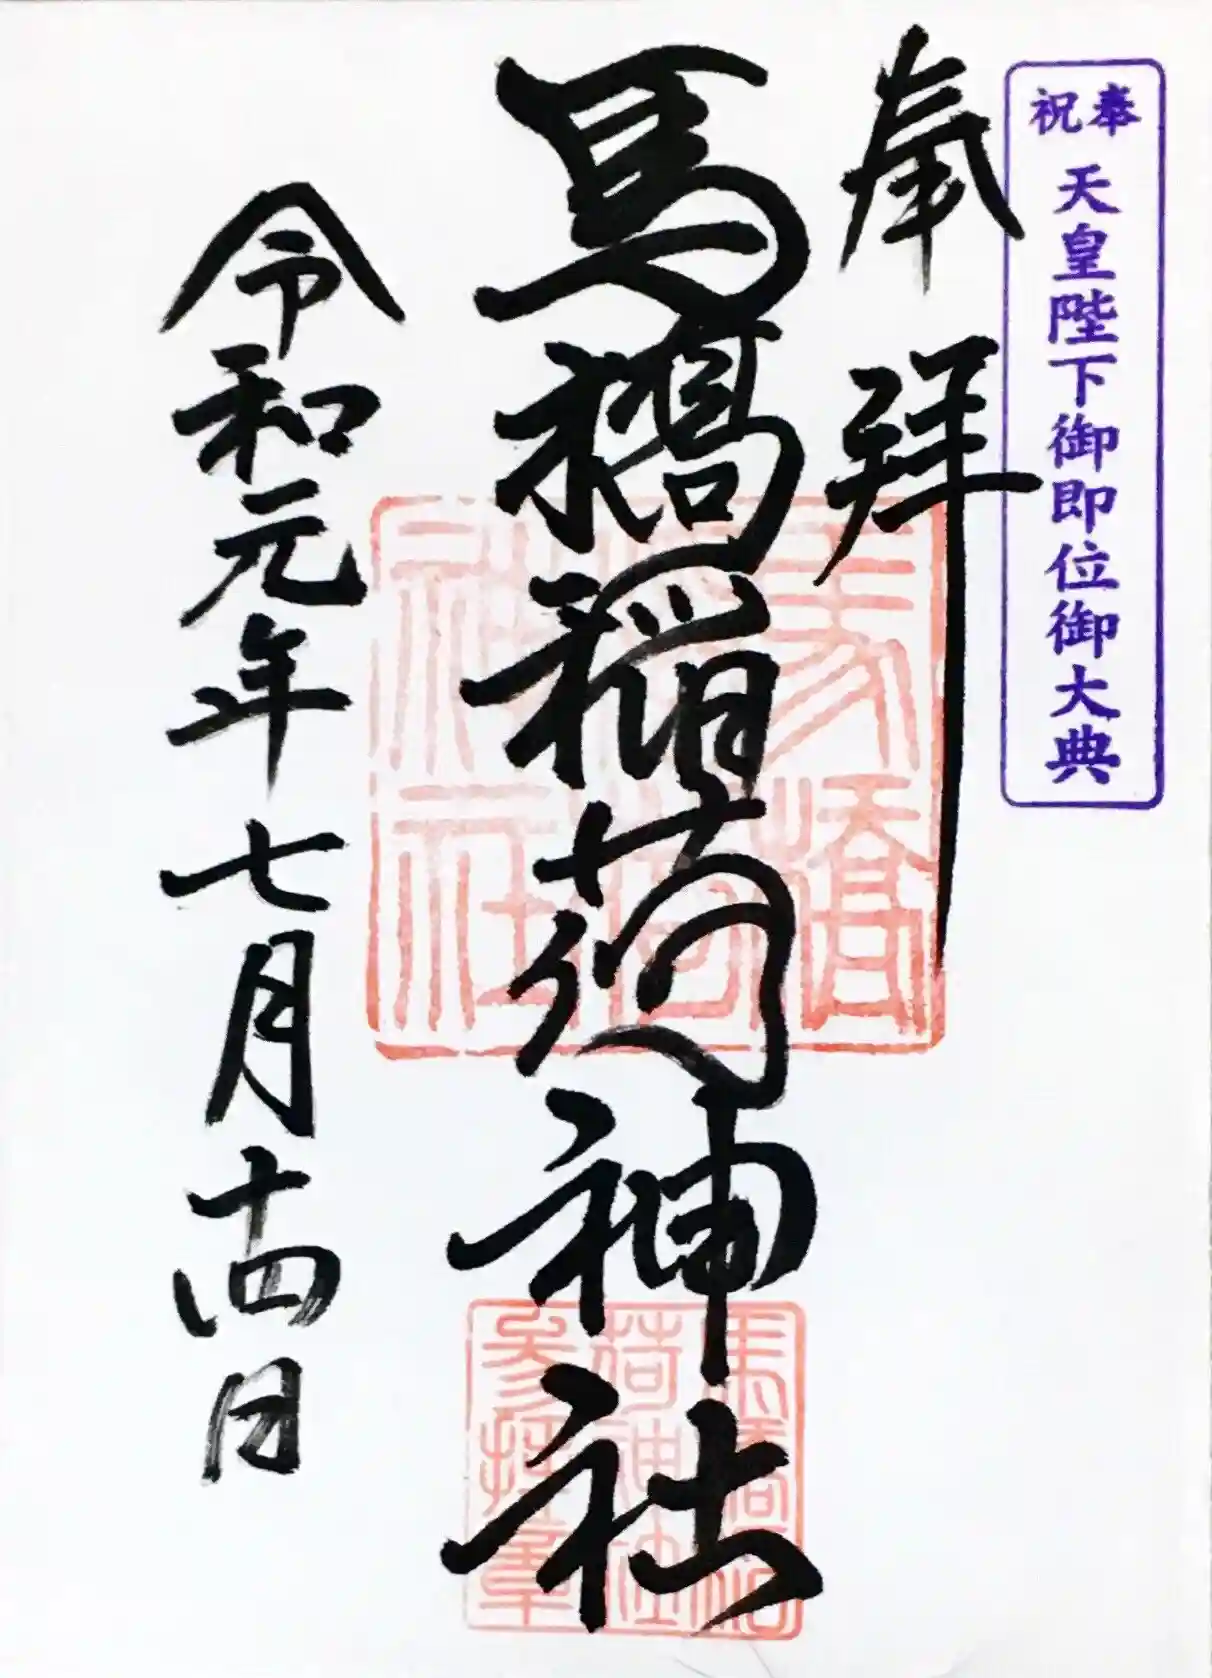 奉祝
天皇陛下御即位御大典
奉拝
馬橋稲荷神社
令和元年七月十四日
馬橋
稲荷
神社
馬橋稲
荷神社
参拝章